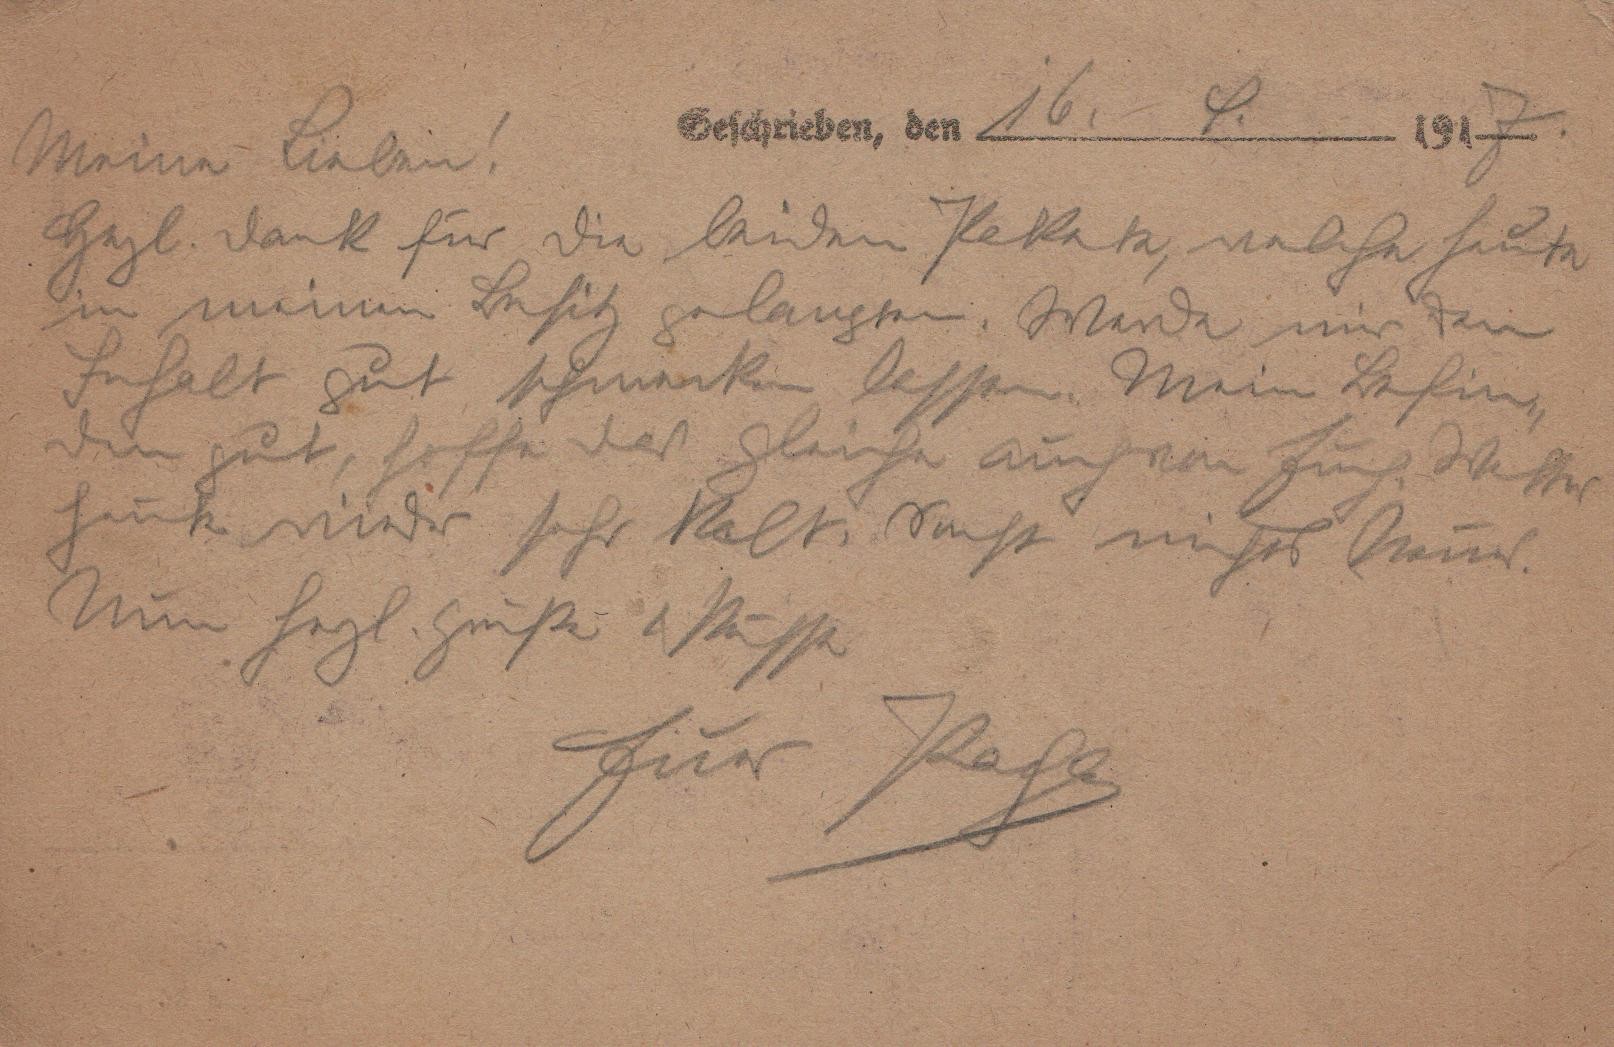 Geschrieben, den 16. 4. 1917.
Meine Lieben!
Hrzl. Dank für die beiden Pakete, welche heute
in meinen Besitz gelangten. Werde mir den
Inhalt gut schmecken lassen. Mein Befin„
den gut, hoffe das gleiche auch von Euch. Wetter
heute wieder sehr kalt. Sonst nichts Neues.
Nun herzl. Grüße & Küsse
Euer